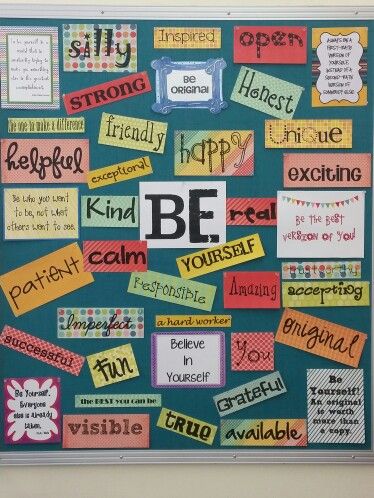 To be yourself in a
world that is
constantly trying to
make you something
else is the greatest
accomplishment.
silly
Inspired
open
Always be a
first-rate
version of
yourself
instead of a
second-rate
version of
someone else.
STRONG
BE
ORIGINAL
Honest
Be one to make a difference
friendly
happy
Unique
helpful
exceptional
exciting
Be who you want
to be, not what
others want to see.
Kind
BE
real
Be the best
version of you!
calm
YOURSELF
patient
RESPONSIBLE
Amazing
accepting
Imperfect
a hard worker
original
successful
fun
Believe
In
Yourself
you
Grateful
Be Yourself.
Everyone
else is already
taken.
the BEST you can be
visible
true
available
Be
Yourself!
An original
is worth
more than
a copy.